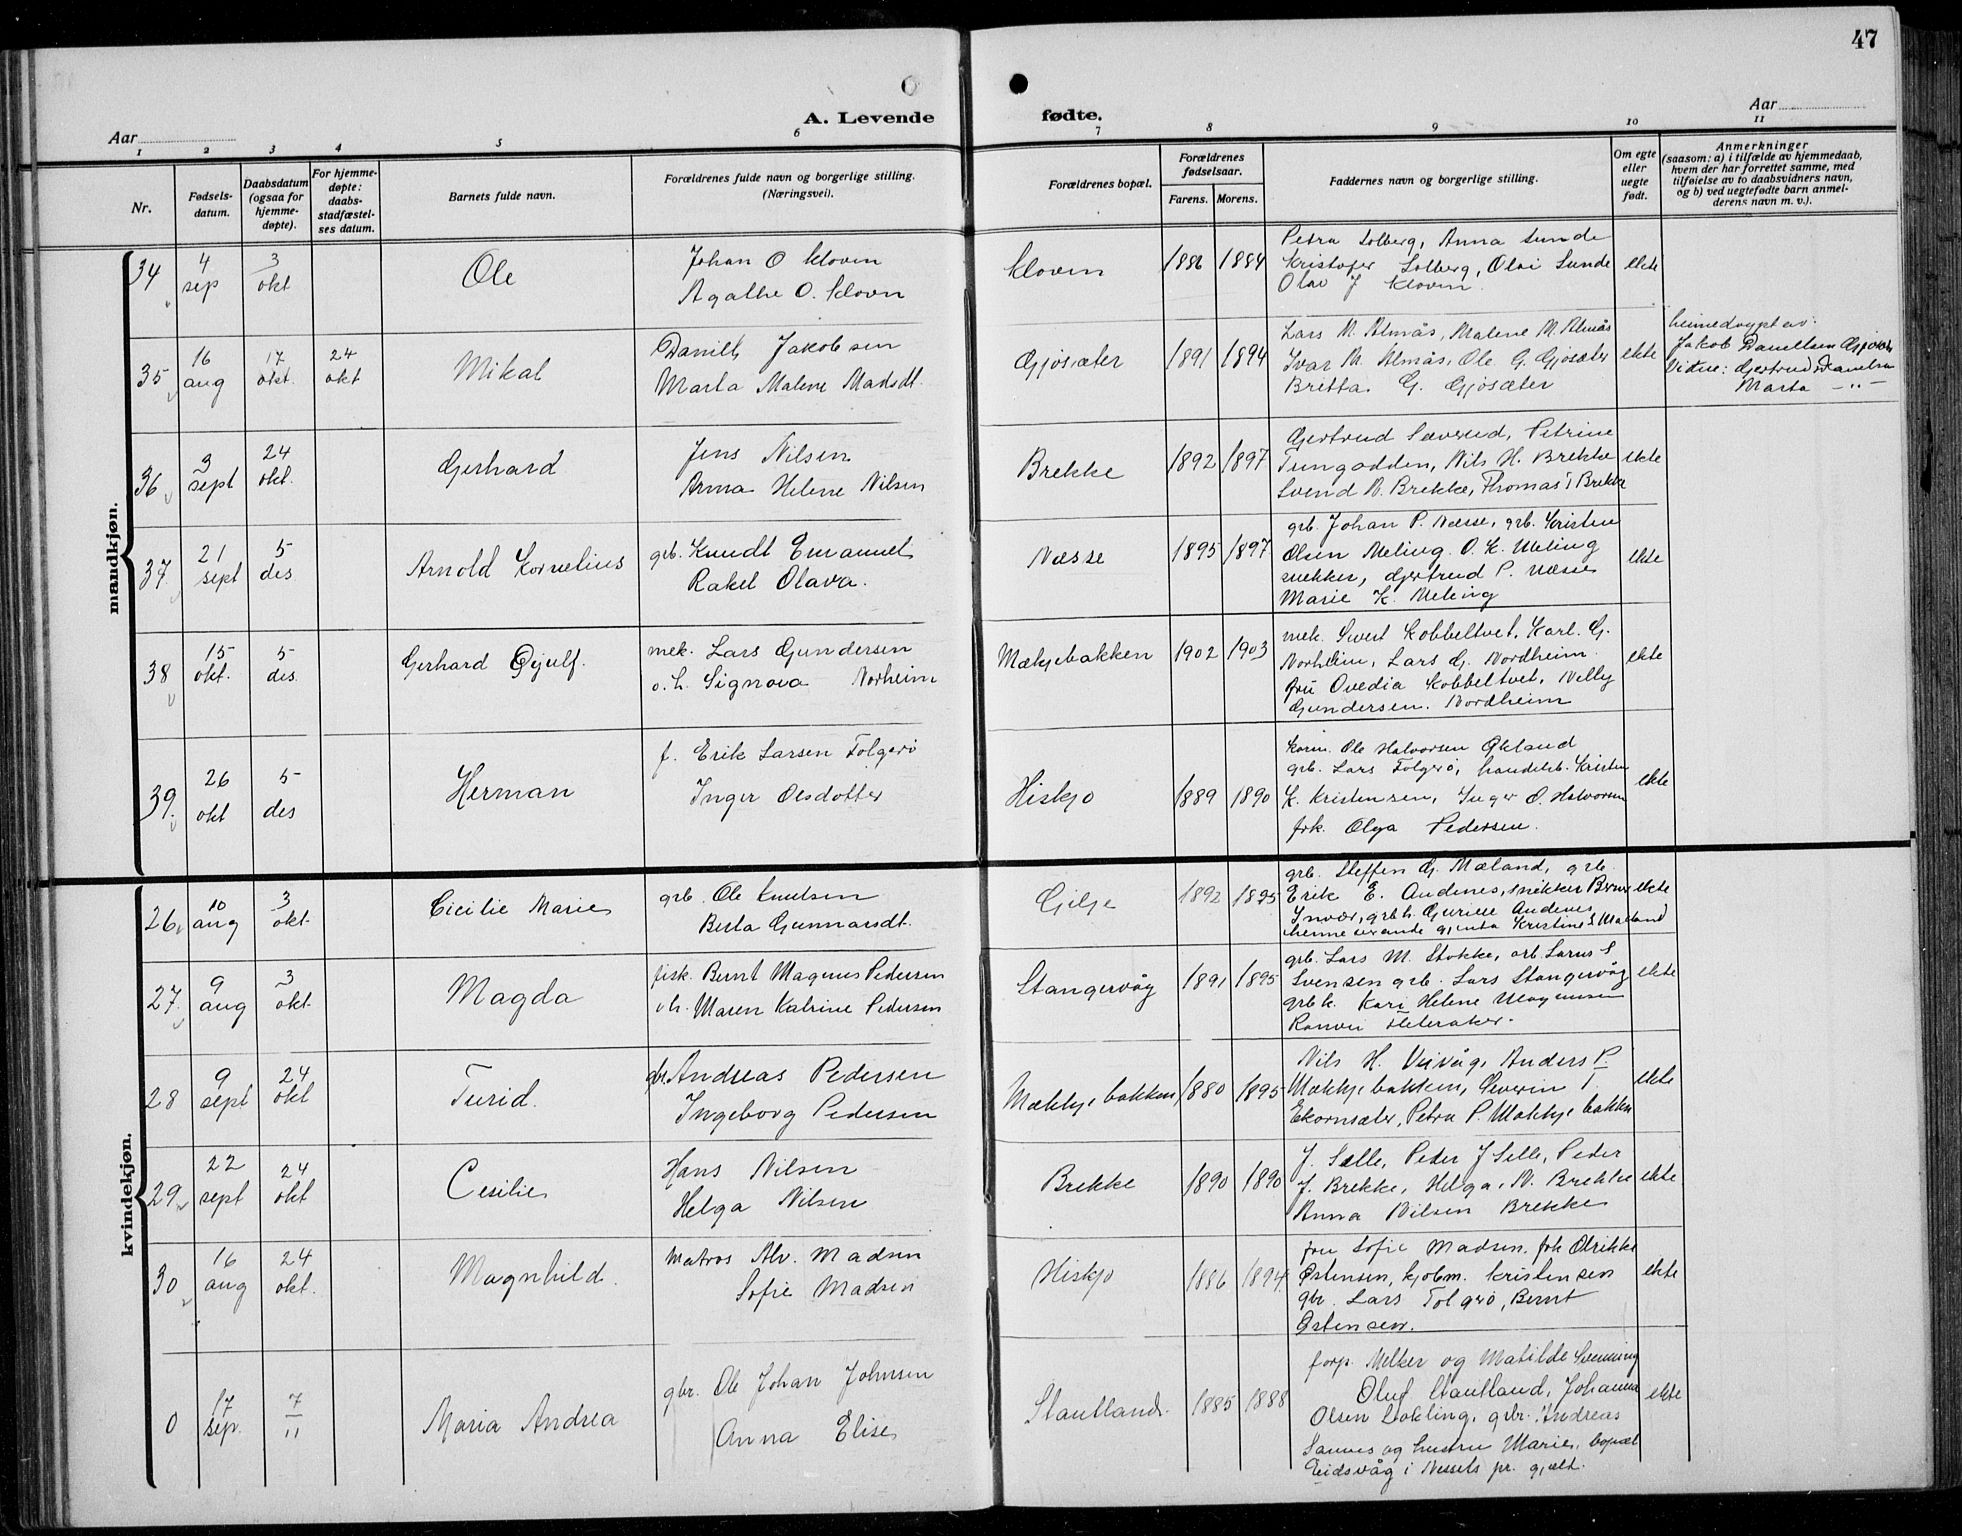 47
A. Levende fødte.
Aar
Aar
1 2 3 4 5 6 7 8 9 10 11
Nr.
Fødsels-
datum.
Daabsdatum
(ogsaa for
hjemme-
døpte).
For hjemme-
døpte:
daabs-
stadfæstel-
ses datum.
Barnets fulde navn.
Forældrenes fulde navn og borgerlige stilling.
(Næringsvei).
Forældrenes bopæl.
Forældrenes
fødselsaar.
Farens. Morens.
Faddernes navn og borgerlige stilling.
Om egte
eller
uegte
født.
Anmerkninger
(saasom: a) i tilfælde av hjemmedaab,
hvem der har forrettet samme, med
tilføielse av to daabsvidners navn,
og b) ved uegtefødte barn anmel-
derens navn m. v.).
mandkjøn.
34
4
sep
3
okt
Ole
Johan O Kloven
Agathe O. Kloven
Kloven
1886 1884
Petra Solberg, Anna Sunde
Kristofer Solberg, Olai Sunde
Olav J Kloven.
ekte
35
16
aug
17
okt.
24
okt
Mikal
Daniel Jakobsen
Marta Malene Madsdt.
Gjøsæter
1891 1894
Lars M. Almås, Malene M. Almås
Ivar M. Almås, Ole G. Gjøsæter
Britta G. Gjøsæter
ekte
heimedøypt av:
Jakob Danielsen Gjøsæter
Vidne: Gjertrud Danielsen
Marta — " —
36
3
sept
24
okt.
Gerhard
Jens Nilsen
Anna Helene Nilsen
Brekke
1892 1897
Gjertrud Sæverud, Petrine
Tungodden, Nils H. Brekke
Svend N. Brekke, Thomas Brekke
ekte
37
21
sept
5
des
Arnold Kornelius
grb. Knudt Emanuel
Rakel Olava.
Næsse
1895 1897
grb. Johan P. Næsse, grb. Kristen
Olsen Meling. O. K. Meling
snekker, Gjertrud P. Næsse
Marie K. Meling
ekte
38
15
okt.
5
des.
Gerhard Øyulf.
mek. Lars Gundersen
o. h. Signora Norheim
Mækjebakken
1902 1903
mek. Sivert Kobbeltvet, Karl. G.
Norheim, Lars G. Nordheim.
fru Ovedia Kobbeltvet, Nelly
Gundersen. Nordheim
ekte
39.
26
okt
5
des
Herman
f. Erik Larsen Folgerø
Inger Olsdotter
Hiskjo
1889 1890
Ole Halvorsen Økland
grb. Lars Folgerø, handelsb. Kristen
K. Kristensen, Inger O. Halvorsen
frk. Olga Pedersen.
ekte
kvindekjøn.
26
10
aug
3
okt.
Cicilie Marie
grb. Ole Knutsen
Berta Gunnarsdt.
Gilje
1892 1895
grb. Steffen G. Mæland, grb.
Erik E. Andenes, snikker
grb h. Andenes
heimeverande gjenta Kristine S Mæland
ekte
27.
9
aug
3
okt.
Magda
fisk. Bernt Magnus Pedersen
o h. Maren Katrine Pedersen
Stangervåg
1891 1895
grb. Lars M. Stokke, arb. S
Svensen grb. Lars Stangervåg
grb h. Kari Helene Magnussen
ekte
28
9
sept
24
okt
Turid.
gbr. Andreas Pedersen
Ingeborg Pedersen
Mækkjebakken
1880 1895
Nils H. Vivåg, Anders P.
Mækkjebakken, Severin T.
Ekornsæter, Petra P. Mækkjebakken
ekte
29.
22
sept
24
okt
Cesilie
Hans Nilsen
Helga Nilsen
Brekke
1890 1890
J. Sælle, Peder J Selle, Peder
J. Brekke, Helga N. Brekke
Anna Nilsen Brekke
ekte
30
16
aug
24
okt.
Magnhild.
Matros Alv. Madsen
Sofie Madsen
Hiskjo
1886 1894
fru Sofie Madsen. frk Olrikke
Østensen, kjøbm. Kristensen
gbr. Lars Folgerø, Bernt
Østensen.
ekte
0
17
sep.
7
11
Maria Andrea
gbr. Ole Johan Johnsen
Anna Elise
Stautland.
1885 1888
forp. Melker og Matilde
Oluf Stautland, Johanna
Olsen Løkling, grbr. Andreas
Sannes og hustru Marie, bopæl
Eidsvåg i Nessets pr. gjæld.
ekte